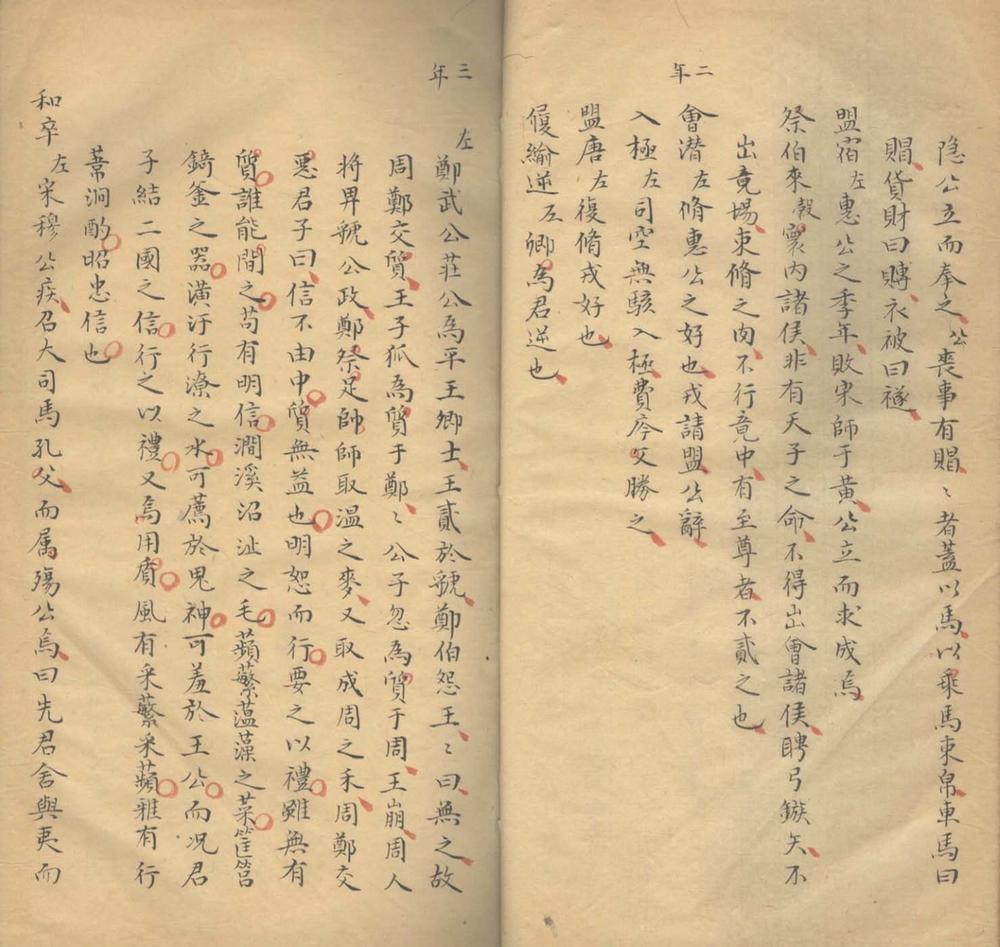 隐公立而奉之公喪事有賵〻者蓋以馬以乘馬束帛車馬曰
賵貨財曰賻衣被曰襚
盟宿左惠公之季年敗宋師于黄公立而求成焉
祭伯來穀寰内諸侯非有天子之命不得出會諸侯聘弓鏃矢不
出竟場束脩之肉不行竟中有至尊者不貳之也
二年
會潜左脩惠公之好也戎請盟公辭
入極左司空無駭入極費庈父勝之
盟唐左復脩戎好也
履緰逆左卿為君逆也
三年
左鄭武公莊公為平王卿士王貳於虢鄭伯怨王〻曰無之故
周鄭交質王子狐為質于鄭〻公子忽為質于周王崩周人
将畀虢公政鄭祭足帥師取温之麥又取成周之禾周鄭交
惡君子曰信不由中質無益也明恕而行要之以禮雖無有
質誰能間之苟有明信澗溪沼沚之毛蘋蘩薀藻之菜筐筥
錡釜之器潢汙行潦之水可薦於鬼神可羞於王公而况君
子結二國之信行之以禮又焉用質風有采蘩采蘋雅有行
葦泂酌昭忠信也
和卒左宋穆公疾召大司馬孔父而属殤公焉曰先君舍與夷而